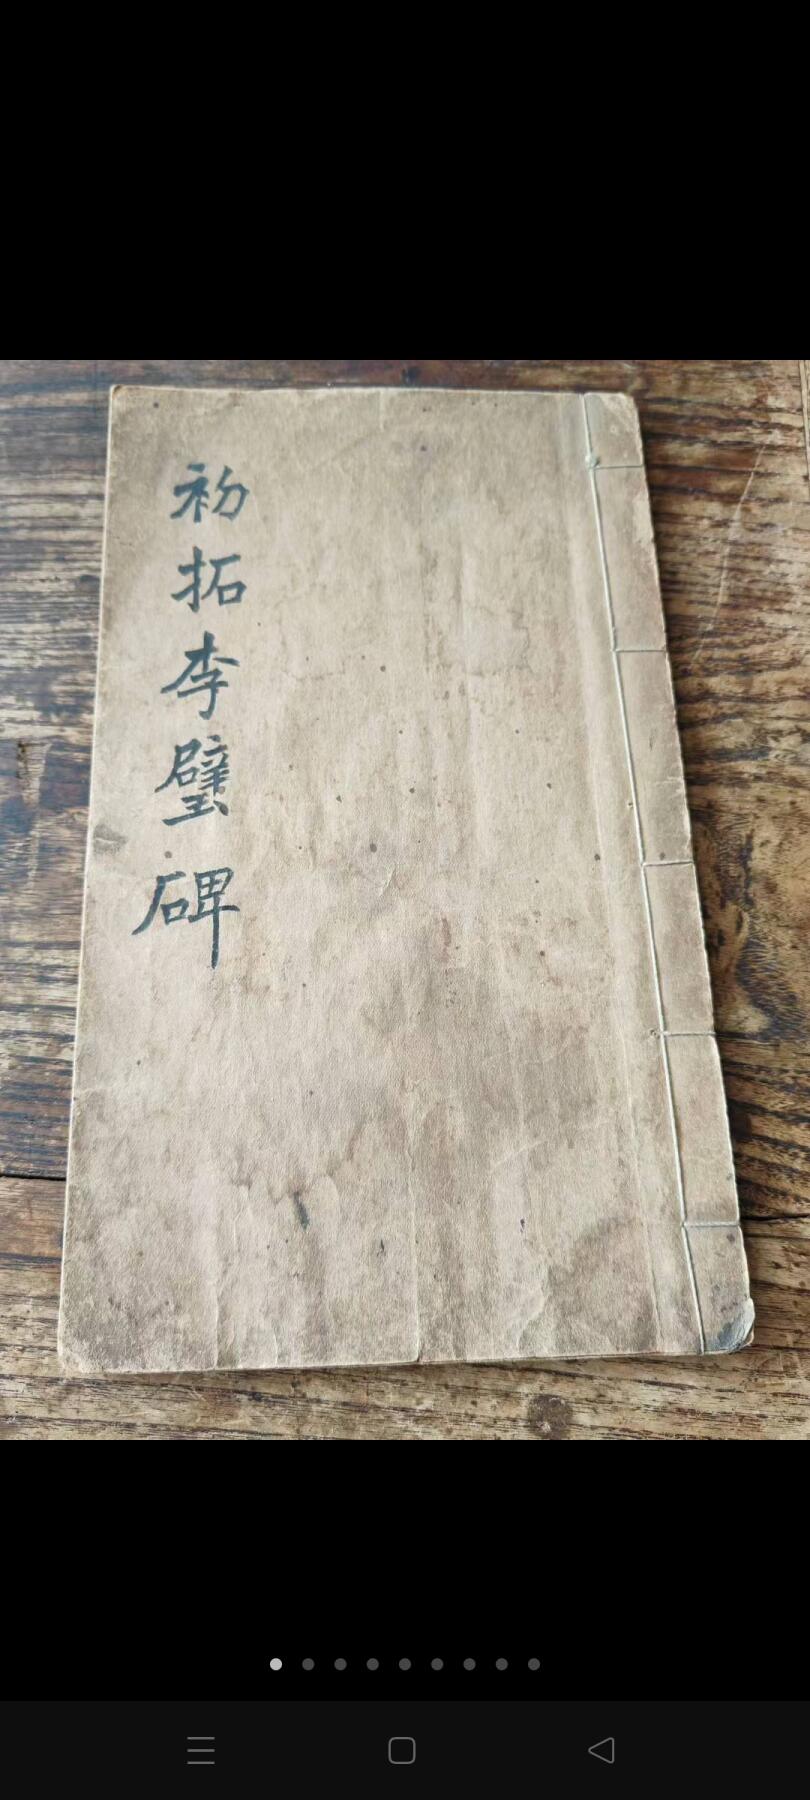 初拓李璧碑